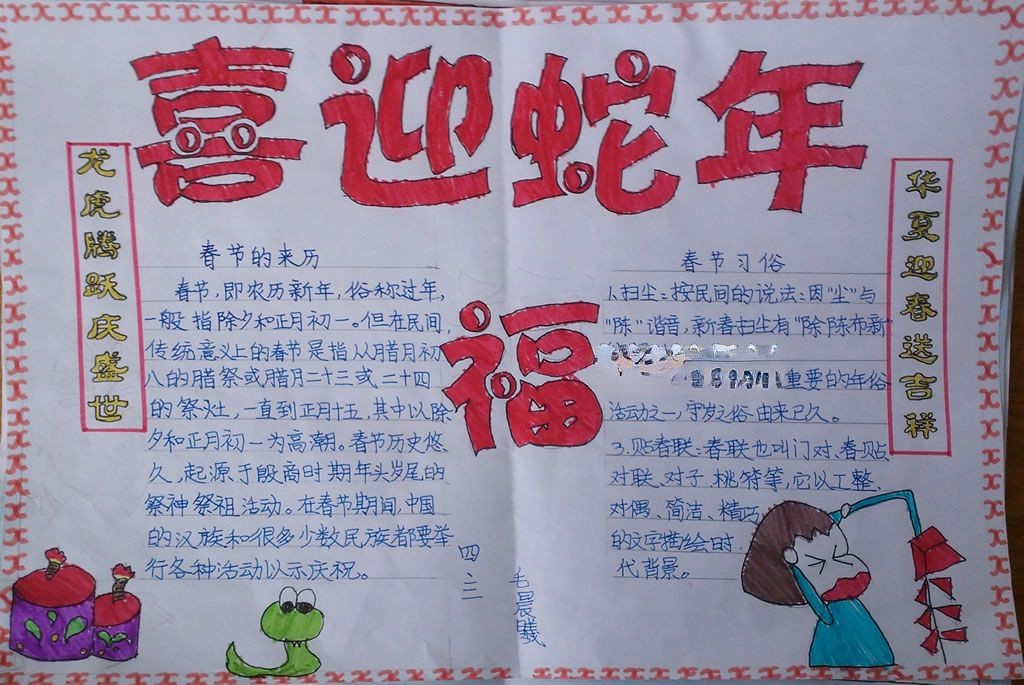 喜迎蛇年
龙虎腾跃庆盛世
华夏迎春送吉祥
福
春节的来历
春节,即农历新年,俗称过年,
一般指除夕和正月初一。但在民间,
传统意义上的春节是指从腊月初
八的腊祭或腊月二十三或二十四
的祭灶,一直到正月十五,其中以除
夕和正月初一为高潮。春节历史悠
久,起源于殷商时期年头岁尾的
祭神祭祖活动。在春节期间,中国
的汉族和很多少数民族都要举
行各种活动以示庆祝。
春节习俗
1.扫尘:按民间的说法:因"尘"与
"陈"谐音,新春扫尘有"除陈布新
重要的年俗
活动之一,守岁之俗由来已久。
3.贴春联:春联也叫门对、春贴
对联、对子、桃符等,它以工整、
对偶、简洁、精巧
的文字描绘时
代背景。
四三
毛晨曦